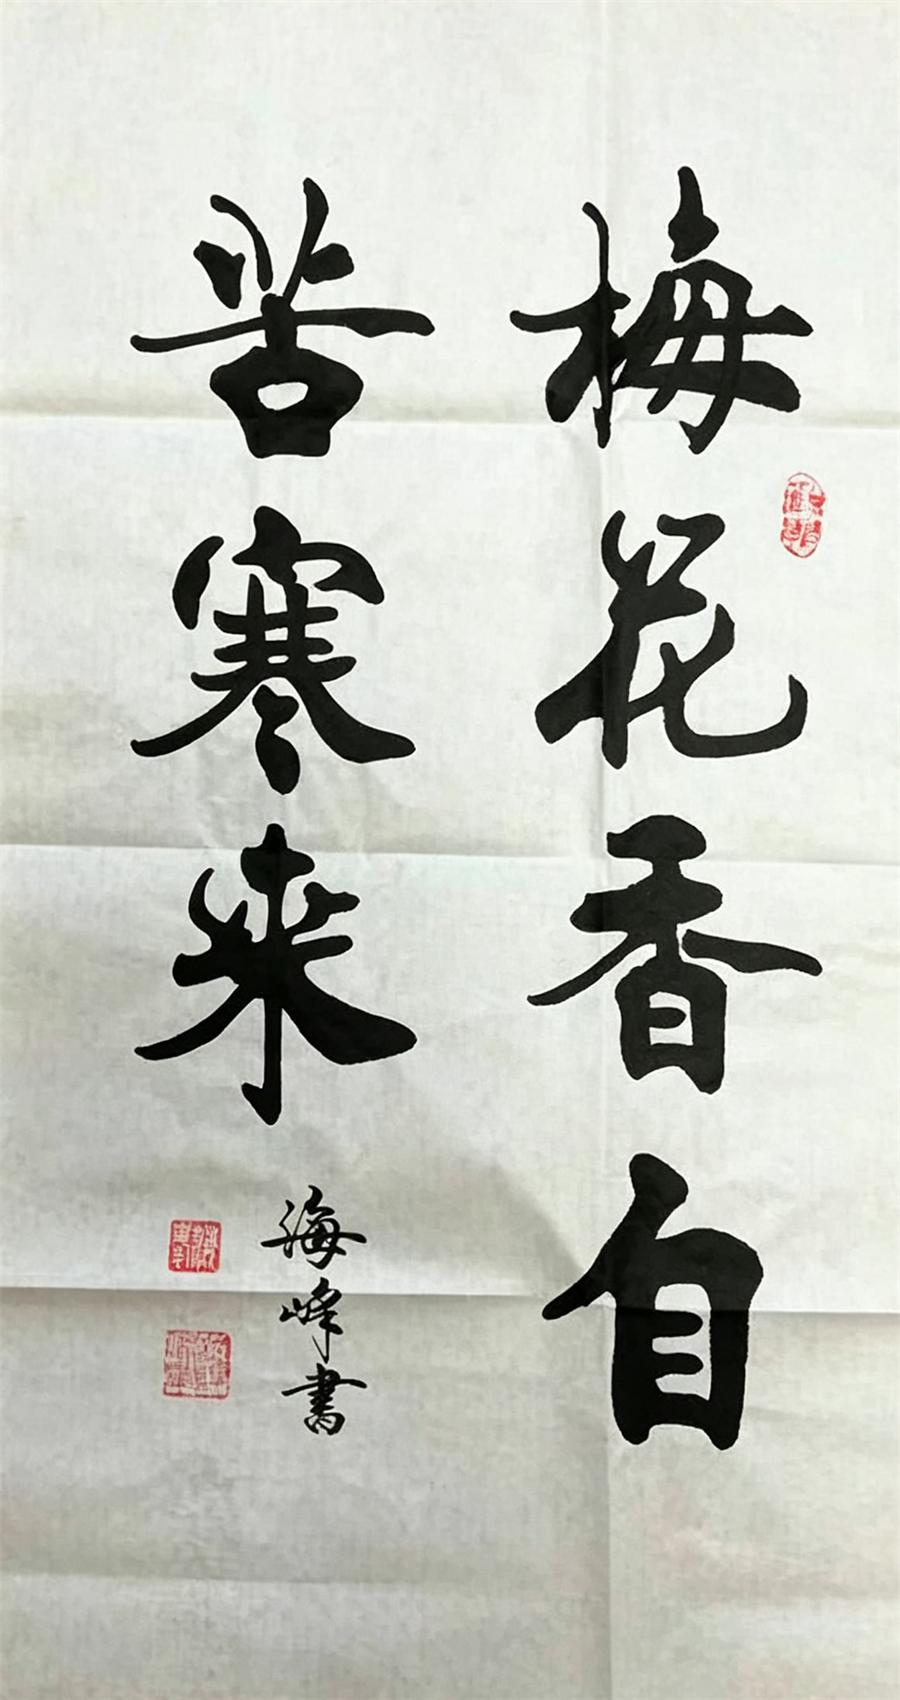 梅花香自
苦寒来
海峰書